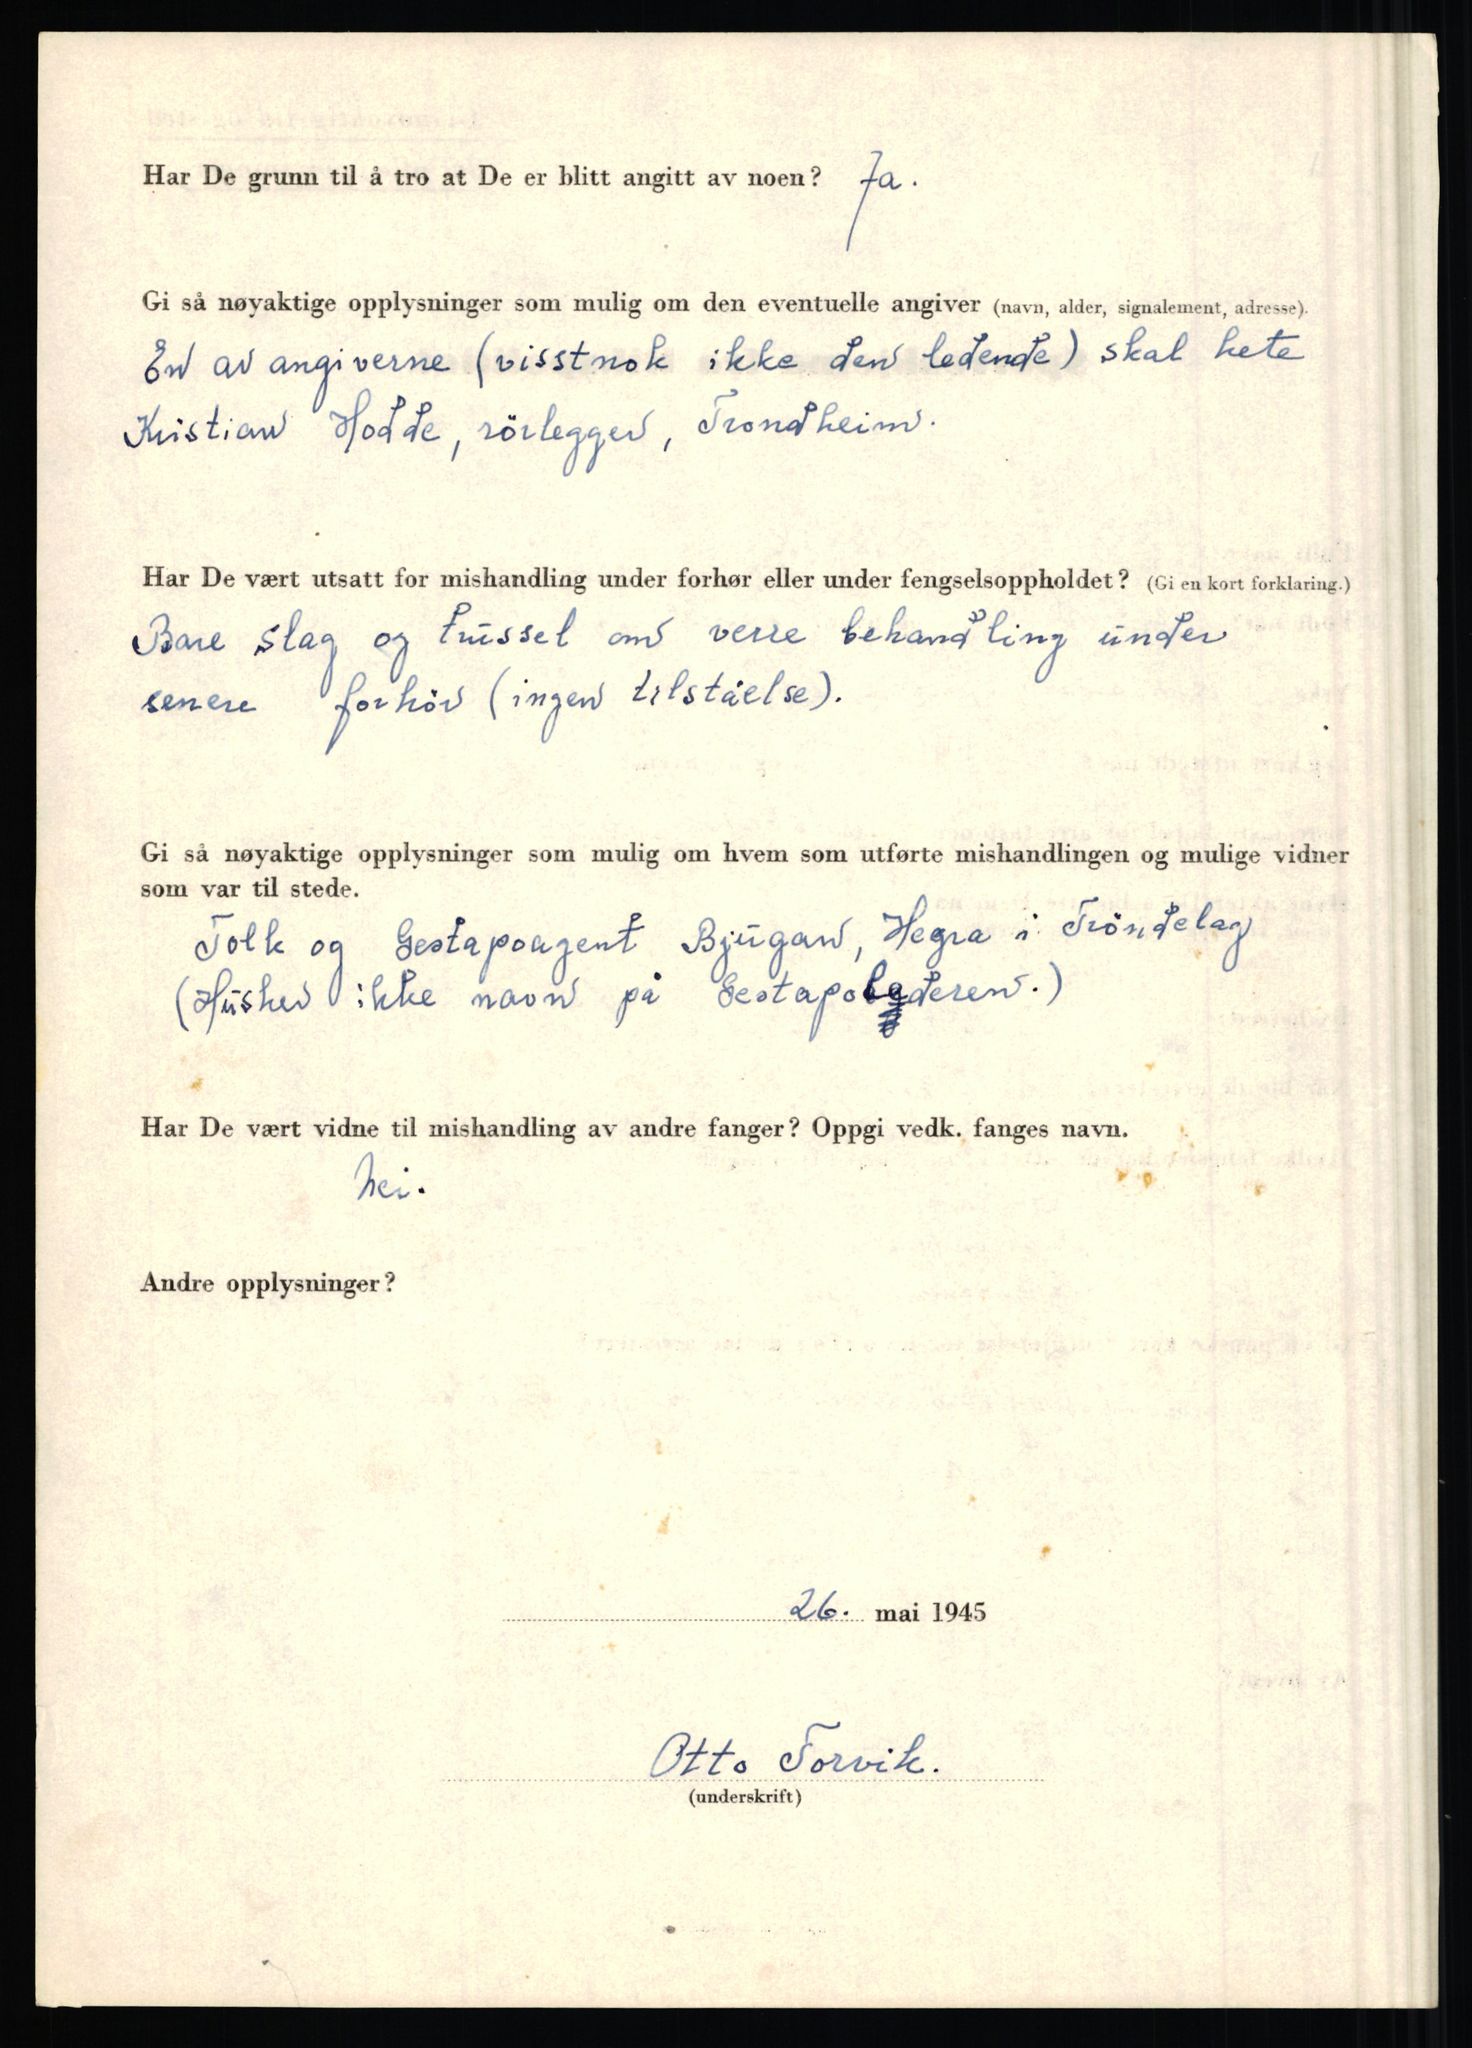 Har De grunn til å tro at De er blitt angitt av noen? Ja.
Gi så nøyaktige opplysninger som mulig om den eventuelle angiver (navn, alder, signalement, adresse).
En av angiverne (visstnok ikke den ledende) skal hete
Kristian Hodde, rörlegger, Trondheim.
Har De vært utsatt for mishandling under forhør eller under fengselsoppholdet? (Gi en kort forklaring.)
Bare slag og trussel om verre behandling under
senere forhör (ingen tilståelse).
Gi så nøyaktige opplysninger som mulig om hvem som utførte mishandlingen og mulige vidner
som var til stede.
Tolk og Gestapoagent Bjugan, Hegra i Tröndelag
(Husker ikke navn på Gestapolederen.)
Har De vært vidne til mishandling av andre fanger? Oppgi vedk. fanges navn.
Nei.
Andre opplysninger?
26. mai 1945
Otto Forvik.
(underskrift)